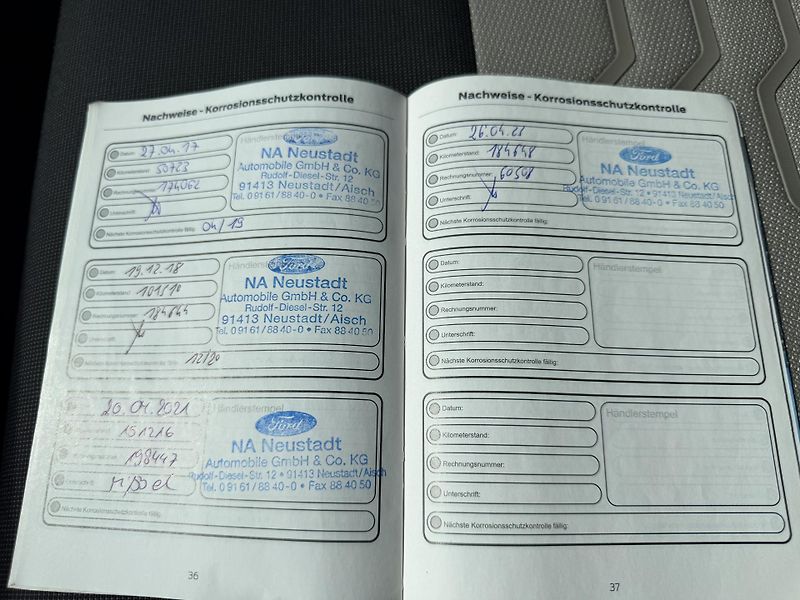 Nachweise - Korrosionsschutzkontrolle
Datum: 27.04.17
Kilometerstand: 50723
Rechnungsnummer: 174062
Unterschrift:
Nächste Korrosionsschutzkontrolle fällig: 04/19
Händlerstempel
Ford
NA Neustadt
Automobile GmbH & Co. KG
Rudolf-Diesel-Str. 12
91413 Neustadt/Aisch
Tel. 0 91 61 / 88 40-0 • Fax 88 40 50
Datum: 19.12.18
Kilometerstand: 101510
Rechnungsnummer: 184644
Unterschrift:
Nächste Korrosionsschutzkontrolle fällig: 12/20
Händlerstempel
Ford
NA Neustadt
Automobile GmbH & Co. KG
Rudolf-Diesel-Str. 12
91413 Neustadt/Aisch
Tel. 0 91 61 / 88 40-0 • Fax 88 40 50
20.04.2021
151216
198447
Unterschrift:
Nächste Korrosionsschutzkontrolle fällig:
Händlerstempel
Ford
NA Neustadt
Automobile GmbH & Co. KG
Rudolf-Diesel-Str. 12 • 91413 Neustadt/Aisch
Tel. 0 91 61 / 88 40-0 • Fax 88 40 50
36
Nachweise - Korrosionsschutzkontrolle
Datum:
Kilometerstand: 184648
Rechnungsnummer: 60508
Unterschrift:
Nächste Korrosionsschutzkontrolle fällig:
Händlerstempel
Ford
NA Neustadt
Automobile GmbH & Co. KG
Rudolf-Diesel-Str. 12 • 91413 Neustadt/Aisch
Tel. 0 91 61 / 88 40-0 • Fax 88 40 50
Datum:
Kilometerstand:
Rechnungsnummer:
Unterschrift:
Nächste Korrosionsschutzkontrolle fällig:
Händlerstempel
Datum:
Kilometerstand:
Rechnungsnummer:
Unterschrift:
Nächste Korrosionsschutzkontrolle fällig:
Händlerstempel
37